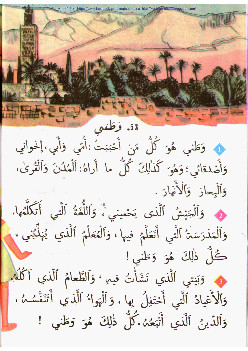 وَطَني
1 وَطَني هُوَ كُلُّ مَنْ أَحْبَبْتُ: أُمّي وَأَبي، إِخْواني
وَأَصْدِقائي؛ وَهُوَ كَذَلِكَ كُلُّ ما أَراهُ: اَلْمُدُنُ وَالْقُرى،
وَالْبِحارُ وَالْأَنْهارُ.
2 وَالْجَيْشُ الَّذي يَحْميني؛ وَاللُّغَةُ الَّتي أَتَكَلَّمُها،
وَالْمَدْرَسَةُ الَّتي أَتَعَلَّمُ فيها، وَالْمُعَلِّمُ الَّذي يُهَذِّبُني،
كُلُّ ذلِكَ هُوَ وَطَني !
3 وَبَيْتي الَّذي نَشَأْتُ فيهِ، وَالطَّعامُ الَّذي آكُلُهُ،
وَالْأَعْيادُ الَّتي أَحْتَفِلُ بِها، وَالْهَواءُ الَّذي أَتَنَفَّسُهُ،
وَالدّينُ الَّذي أَتْبَعُهُ، كُلُّ ذلِكَ هُوَ وَطَني !